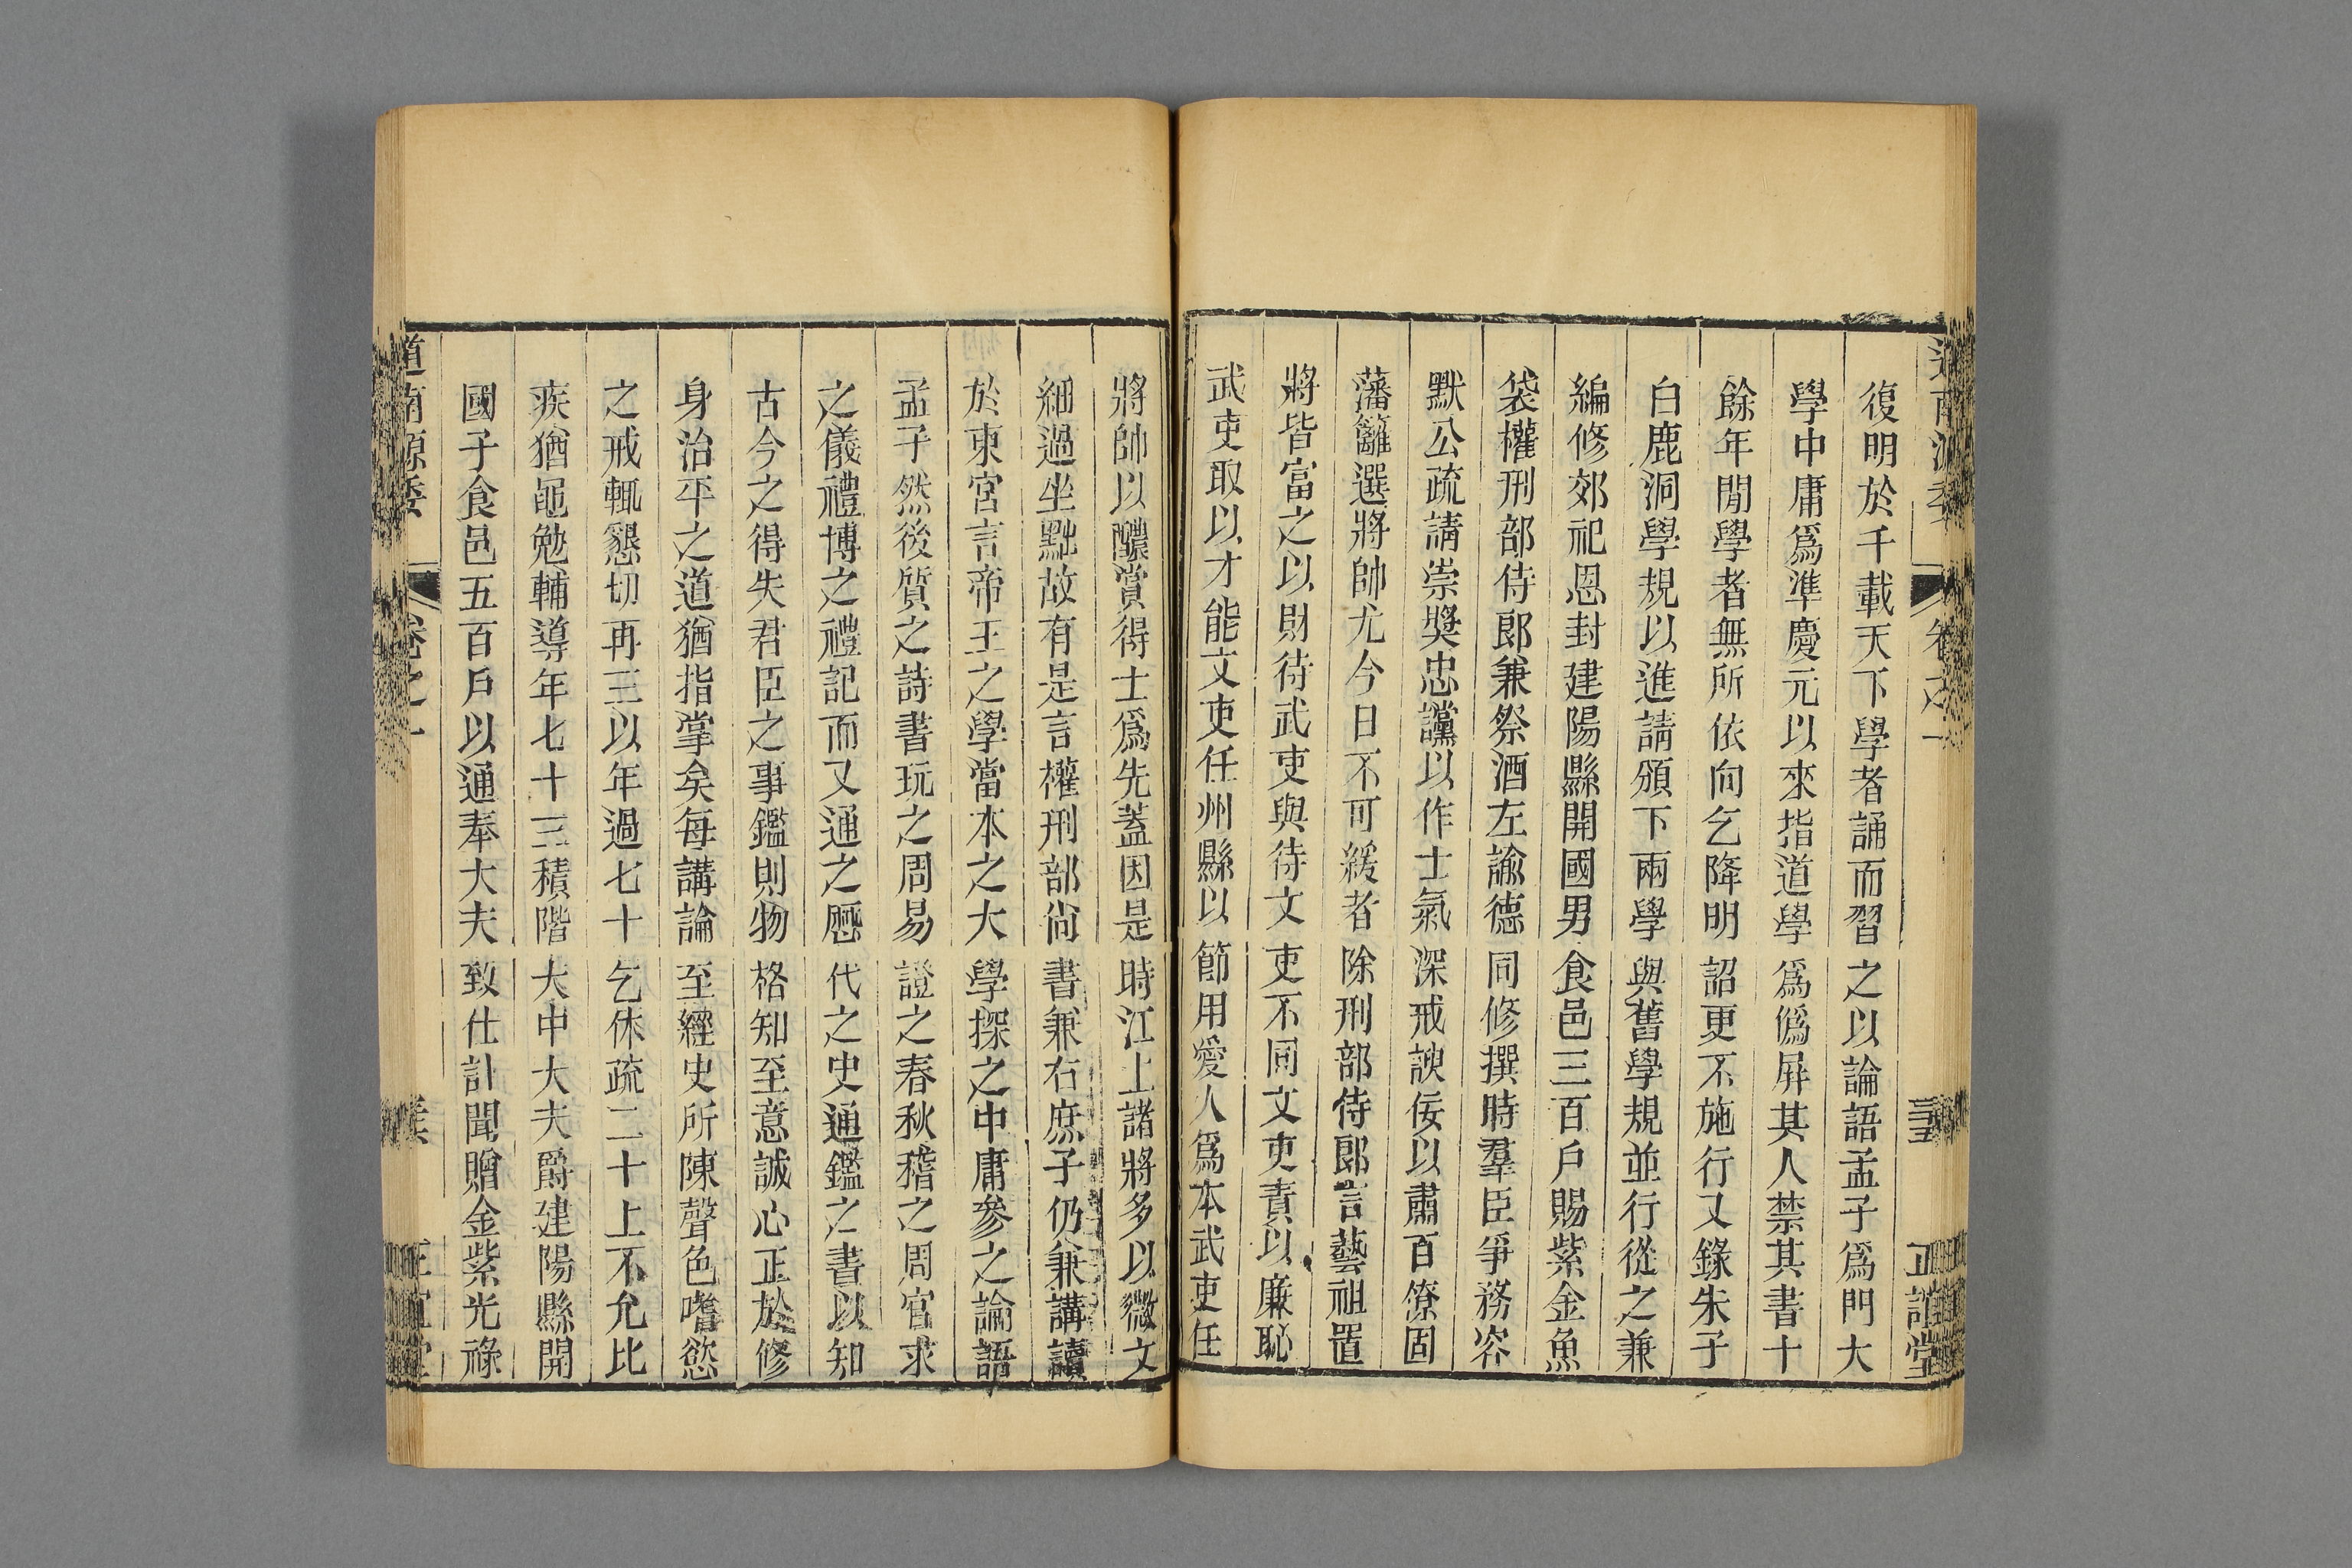 復明於千載天下學者誦而習之以論語孟子爲門大
學中庸爲準慶元以來指道學爲僞屏其人禁其書十
餘年閒學者無所依向乞降明詔更不施行又錄朱子
白鹿洞學規以進請頒下兩學與舊學規並行從之兼
編修郊祀恩封建陽縣開國男食邑三百戶賜紫金魚
袋權刑部侍郎兼祭酒左諭德同修撰時羣臣爭務容
默公疏請崇獎忠讜以作士氣深戒諛佞以肅百僚固
藩籬選將帥尤今日不可緩者除刑部侍郎言藝祖置
將皆富之以財待武吏與待文吏不同文吏責以廉恥
武吏取以才能文吏任州縣以節用愛人爲本武吏任
將帥以醲賞得士爲先蓋因是時江上諸將多以微文
細過坐黜故有是言權刑部尙書兼右庶子仍兼講讀
於東宮言帝王之學當本之大學探之中庸參之論語
孟子然後質之詩書玩之周易證之春秋稽之周官求
之儀禮博之禮記而又通之歷代之史通鑑之書以知
古今之得失君臣之事鑑則物格知至意誠心正於修
身治平之道猶指掌矣每講論至經史所陳聲色嗜慾
之戒輒懇切再三以年過七十乞休疏二十上不允比
疾猶黽勉輔導年七十三積階大中大夫爵建陽縣開
國子食邑五百戶以通奉大夫致仕訃聞贈金紫光祿
道南源委 卷之一